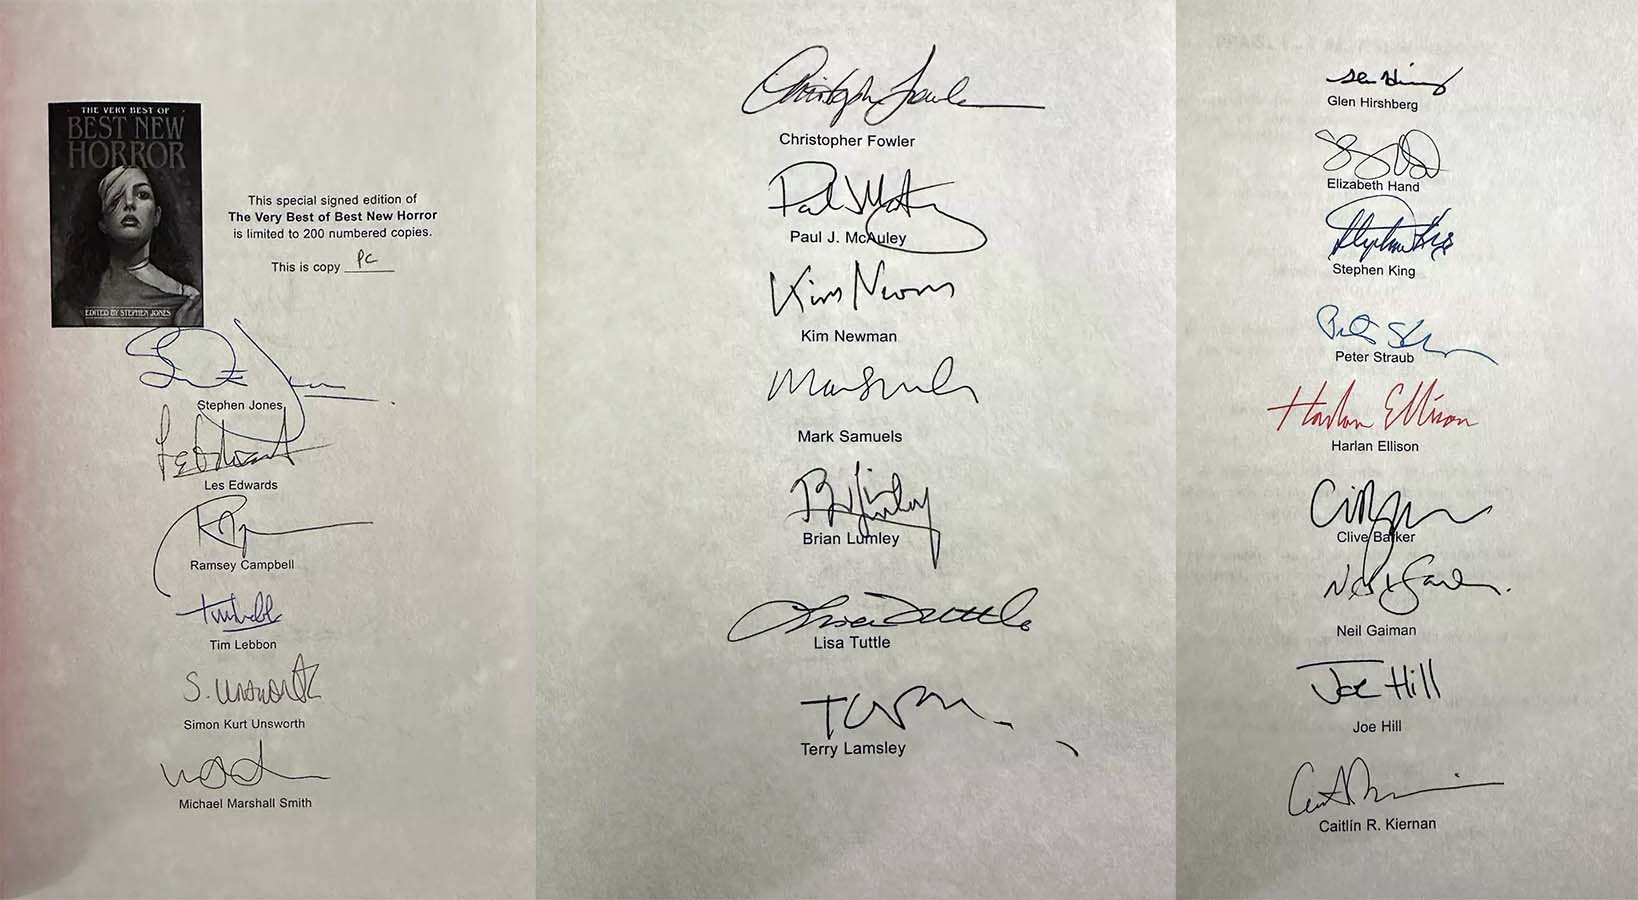 THE VERY BEST OF
BEST NEW
HORROR
EDITED BY STEPHEN JONES
This special signed edition of
The Very Best of Best New Horror
is limited to 200 numbered copies.
This is copy PC
Stephen Jones
Les Edwards
Ramsey Campbell
Tim Lebbon
S. Unsworth
Simon Kurt Unsworth
Michael Marshall Smith
Christopher Fowler
Christopher Fowler
Paul J. McAuley
Kim Newman
Kim Newman
Mark Samuels
Brian Lumley
Lisa Tuttle
Lisa Tuttle
Terry Lamsley
Glen Hirshberg
Elizabeth Hand
Stephen King
Stephen King
Peter Straub
Harlan Ellison
Harlan Ellison
Clive Barker
Neil Gaiman
Joe Hill
Joe Hill
Caitlín R. Kiernan